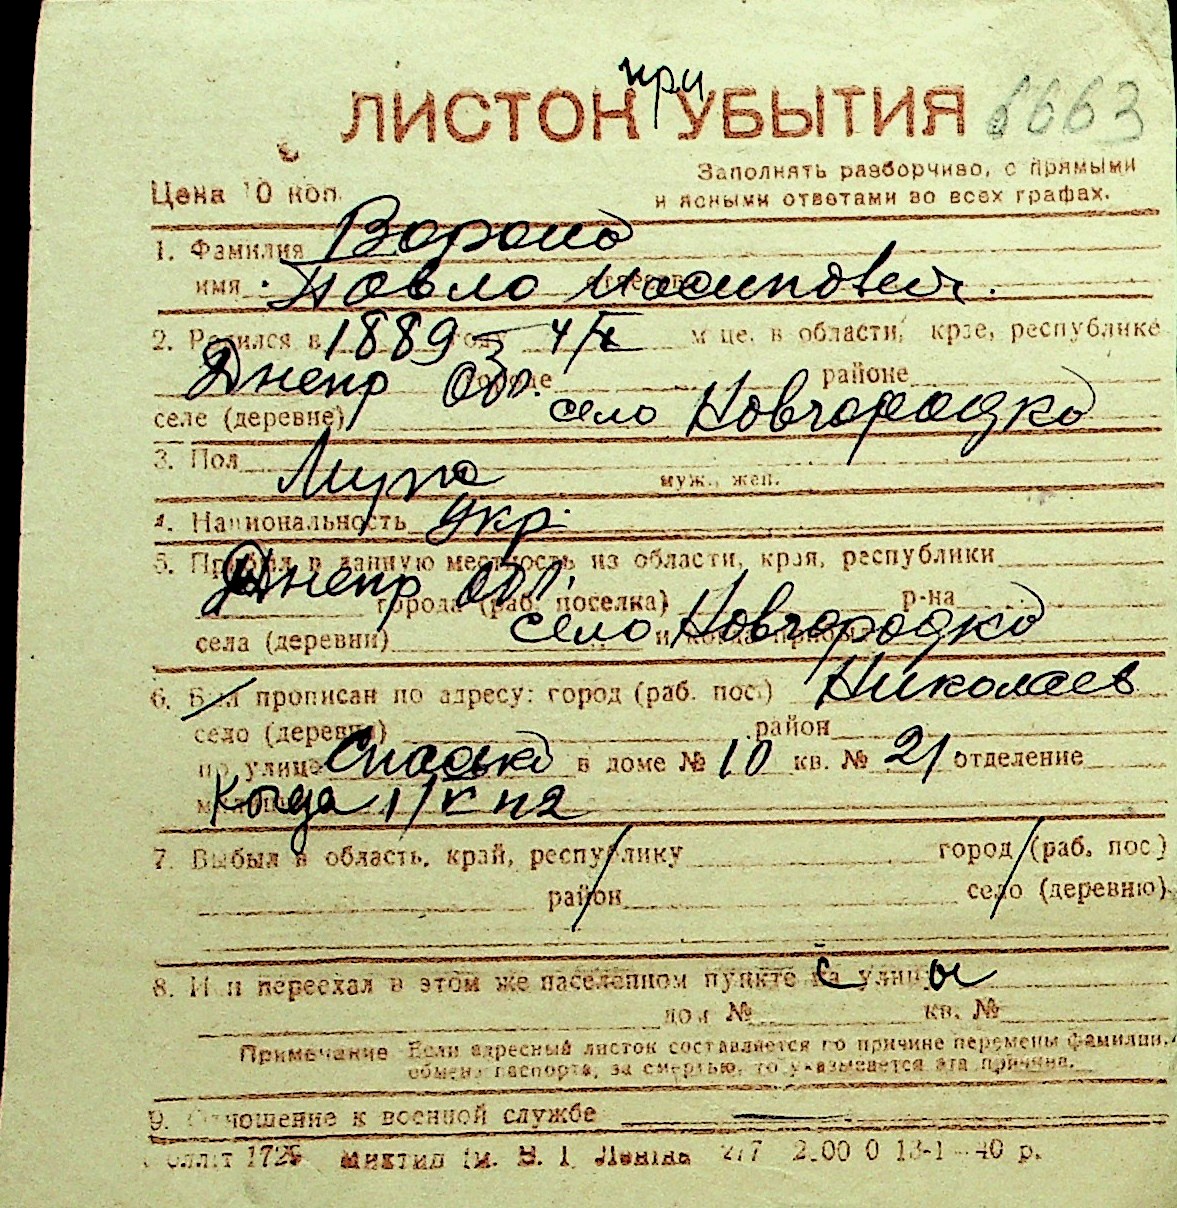 при
ЛИСТОК УБЫТИЯ 6663
Цена 10 коп.
Заполнять разборчиво, с прямыми
и ясными ответами во всех графах.
1. Фамилия Ворона
имя Павло Иосипович.
2. Родился в 1889 году 4/X м-це, в области, крае, республике
Днепр обл. городе районе
селе (деревне) село Новгородка
3. Пол муж., жен.
4. Национальность укр.
5. Прибыл в данную местность из области, края, республики
Днепр обл. города (раб. поселка) р-на
села (деревни) село Новгородка и когда прибыл
6. Был прописан по адресу: город (раб. пос.) Николаев
село (деревня) район
по улице Спаська в доме № 10 кв. № 21 отделение
Когда
7. Выбыл в область, край, республику город (раб. пос.)
район село (деревню)
8. Или переехал в этом же населенном пункте с улицы
дом № кв. №
Примечание Если адресный листок составляется по причине перемены фамилии,
обмена паспорта, за смертью, то указывается эта причина.
9. Отношение к военной службе
Миктип ім. В. І. Леніна 2.00 0 13-1—40 р.